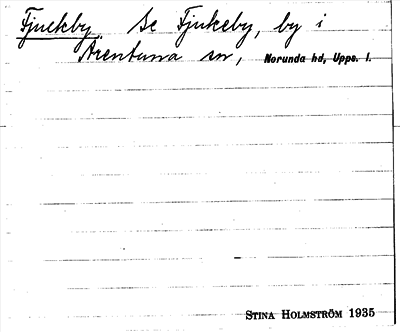 Fjuckby. Se Fjukeby, by i
Ärentuna sn, Norunda hd, Upps. l.
STINA HOLMSTRÖM 1935